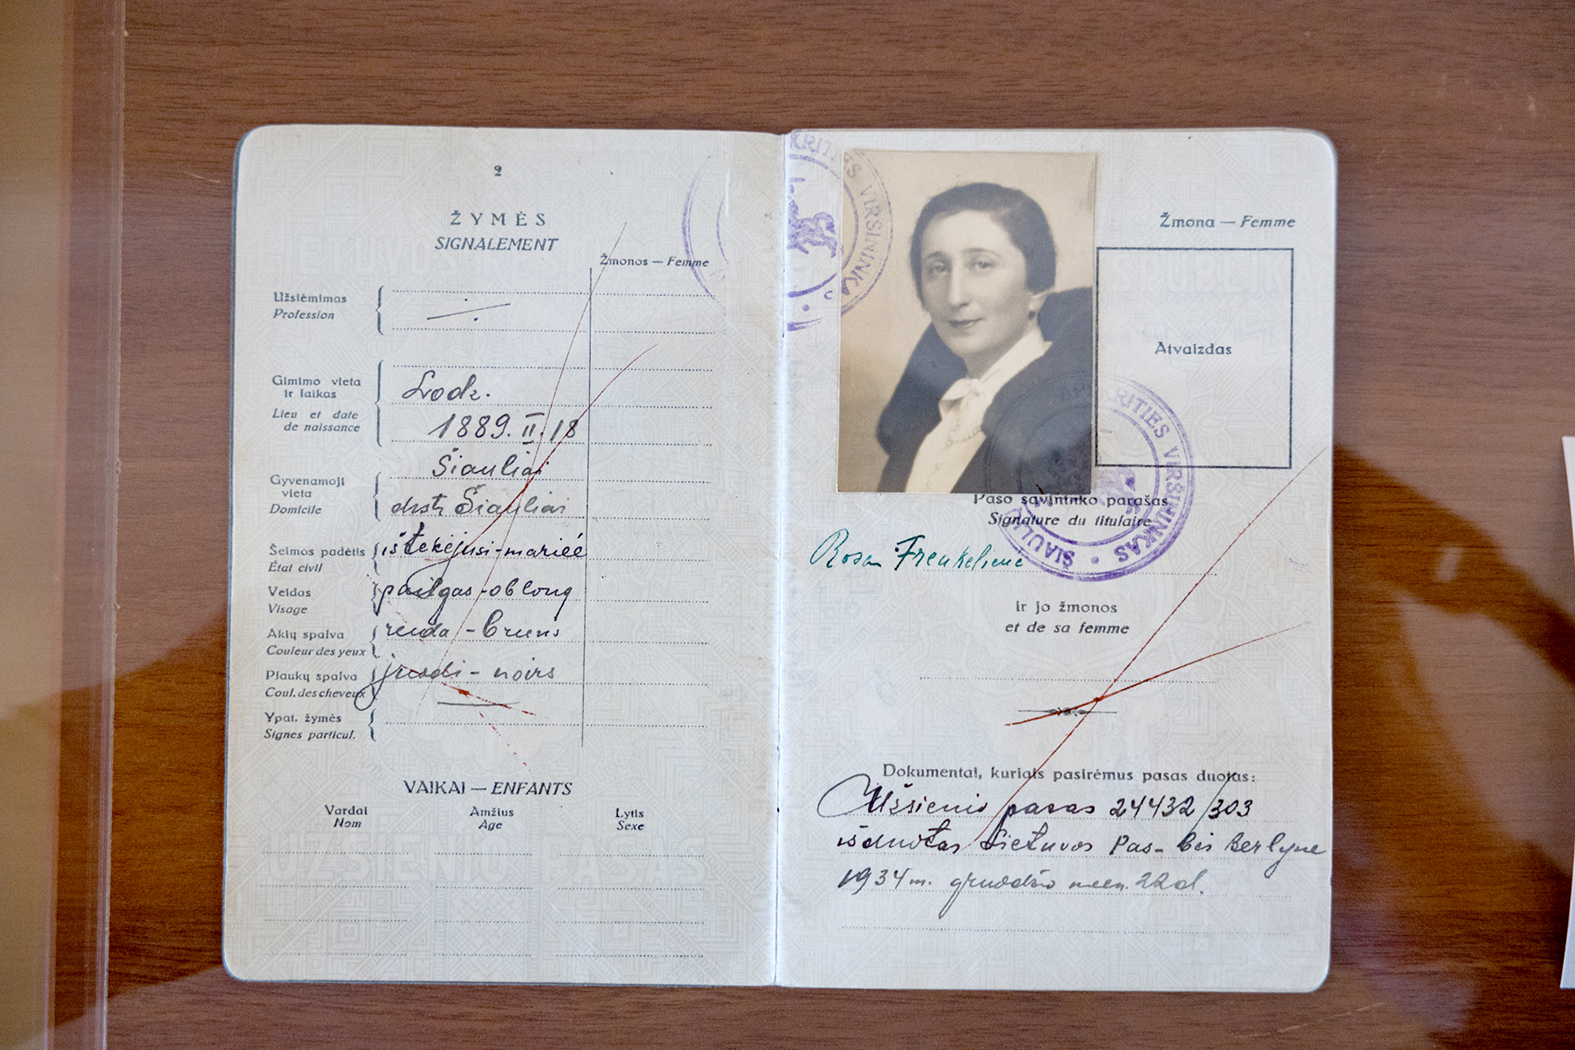 2
ŽYMĖS
SIGNALEMENT
Žmonos — Femme
Užsiėmimas
Profession
Gimimo vieta
ir laikas
Lieu et date
de naissance
Lodz.
1889. II. 18
Šiauliai
Gyvenamoji
vieta
Domicile
Šiauliai
Šeimos padėtis
État civil
ištekėjusi-mariée
Veidas
Visage
pailgas-oblong
Akių spalva
Couleur des yeux
ruda - bruns
Plaukų spalva
Coul. des cheveux
juodi - noirs
Ypat. žymės
Signes particul.
VAIKAI — ENFANTS
Vardai
Nom
Amžius
Age
Lytis
Sexe
UŽSIENIO PASAS
KRITIES VIRŠININKA
Žmona — Femme
Atvaizdas
Paso savininko parašas
Signature du titulaire
ŠIAULIŲ
RITIES VIRŠININKAS
Rosa Frenkelienė
ir jo žmonos
et de sa femme
Dokumentai, kuriais pasirėmus pasas duotas:
Užsienio pasas 24432/303
išduotas Lietuvos Pas-bės Berlyne
1934 m. gruodžio mėn. 22 d.